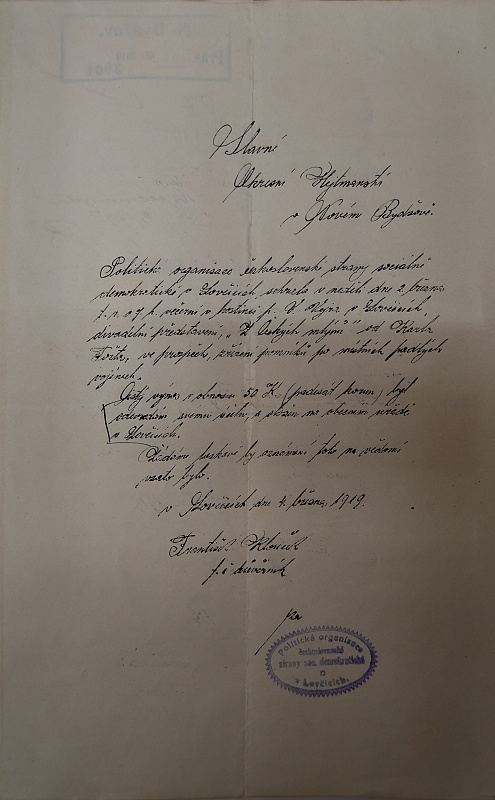 Slavné
Okresní Hejtmanství
v Novém Bydžově.
Politická organisace československé strany sociálně
demokratické v Lovčicích sehrála v neděli dne 2. března
t. r. o 7 h. večerní v hostinci p. V. v Lovčicích,
divadelní představení, "Z Českých mlýnů" od Karla
Fořta, ve prospěch, zřízení pomníků po místních padlých
vojínech.
Čistý výnos v obnosu 50 K (padesát korun) byl
odevzdán svému účelu, a složen na obecním úřadě
v Lovčicích.
Žádáme laskavě by oznámení toto na vědomí
vzato bylo.
v Lovčicích dne 4. března 1919.
František
t. č. důvěrník
za
Politická organisace
československé
strany soc. demokratické
v Lovčicích.